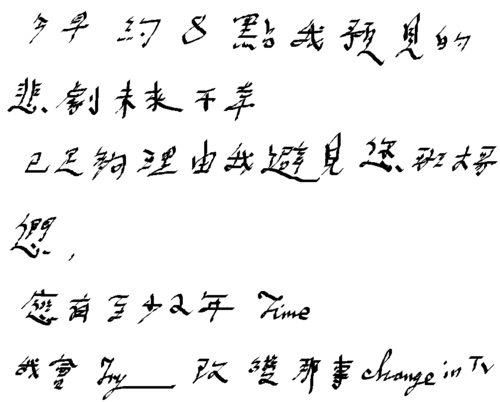 今早約8點我預見的
悲劇未來不幸
已足夠理由我避見您.班大哥
您,
應有至少2年 Time
我會Try___ 改變那事change in TV